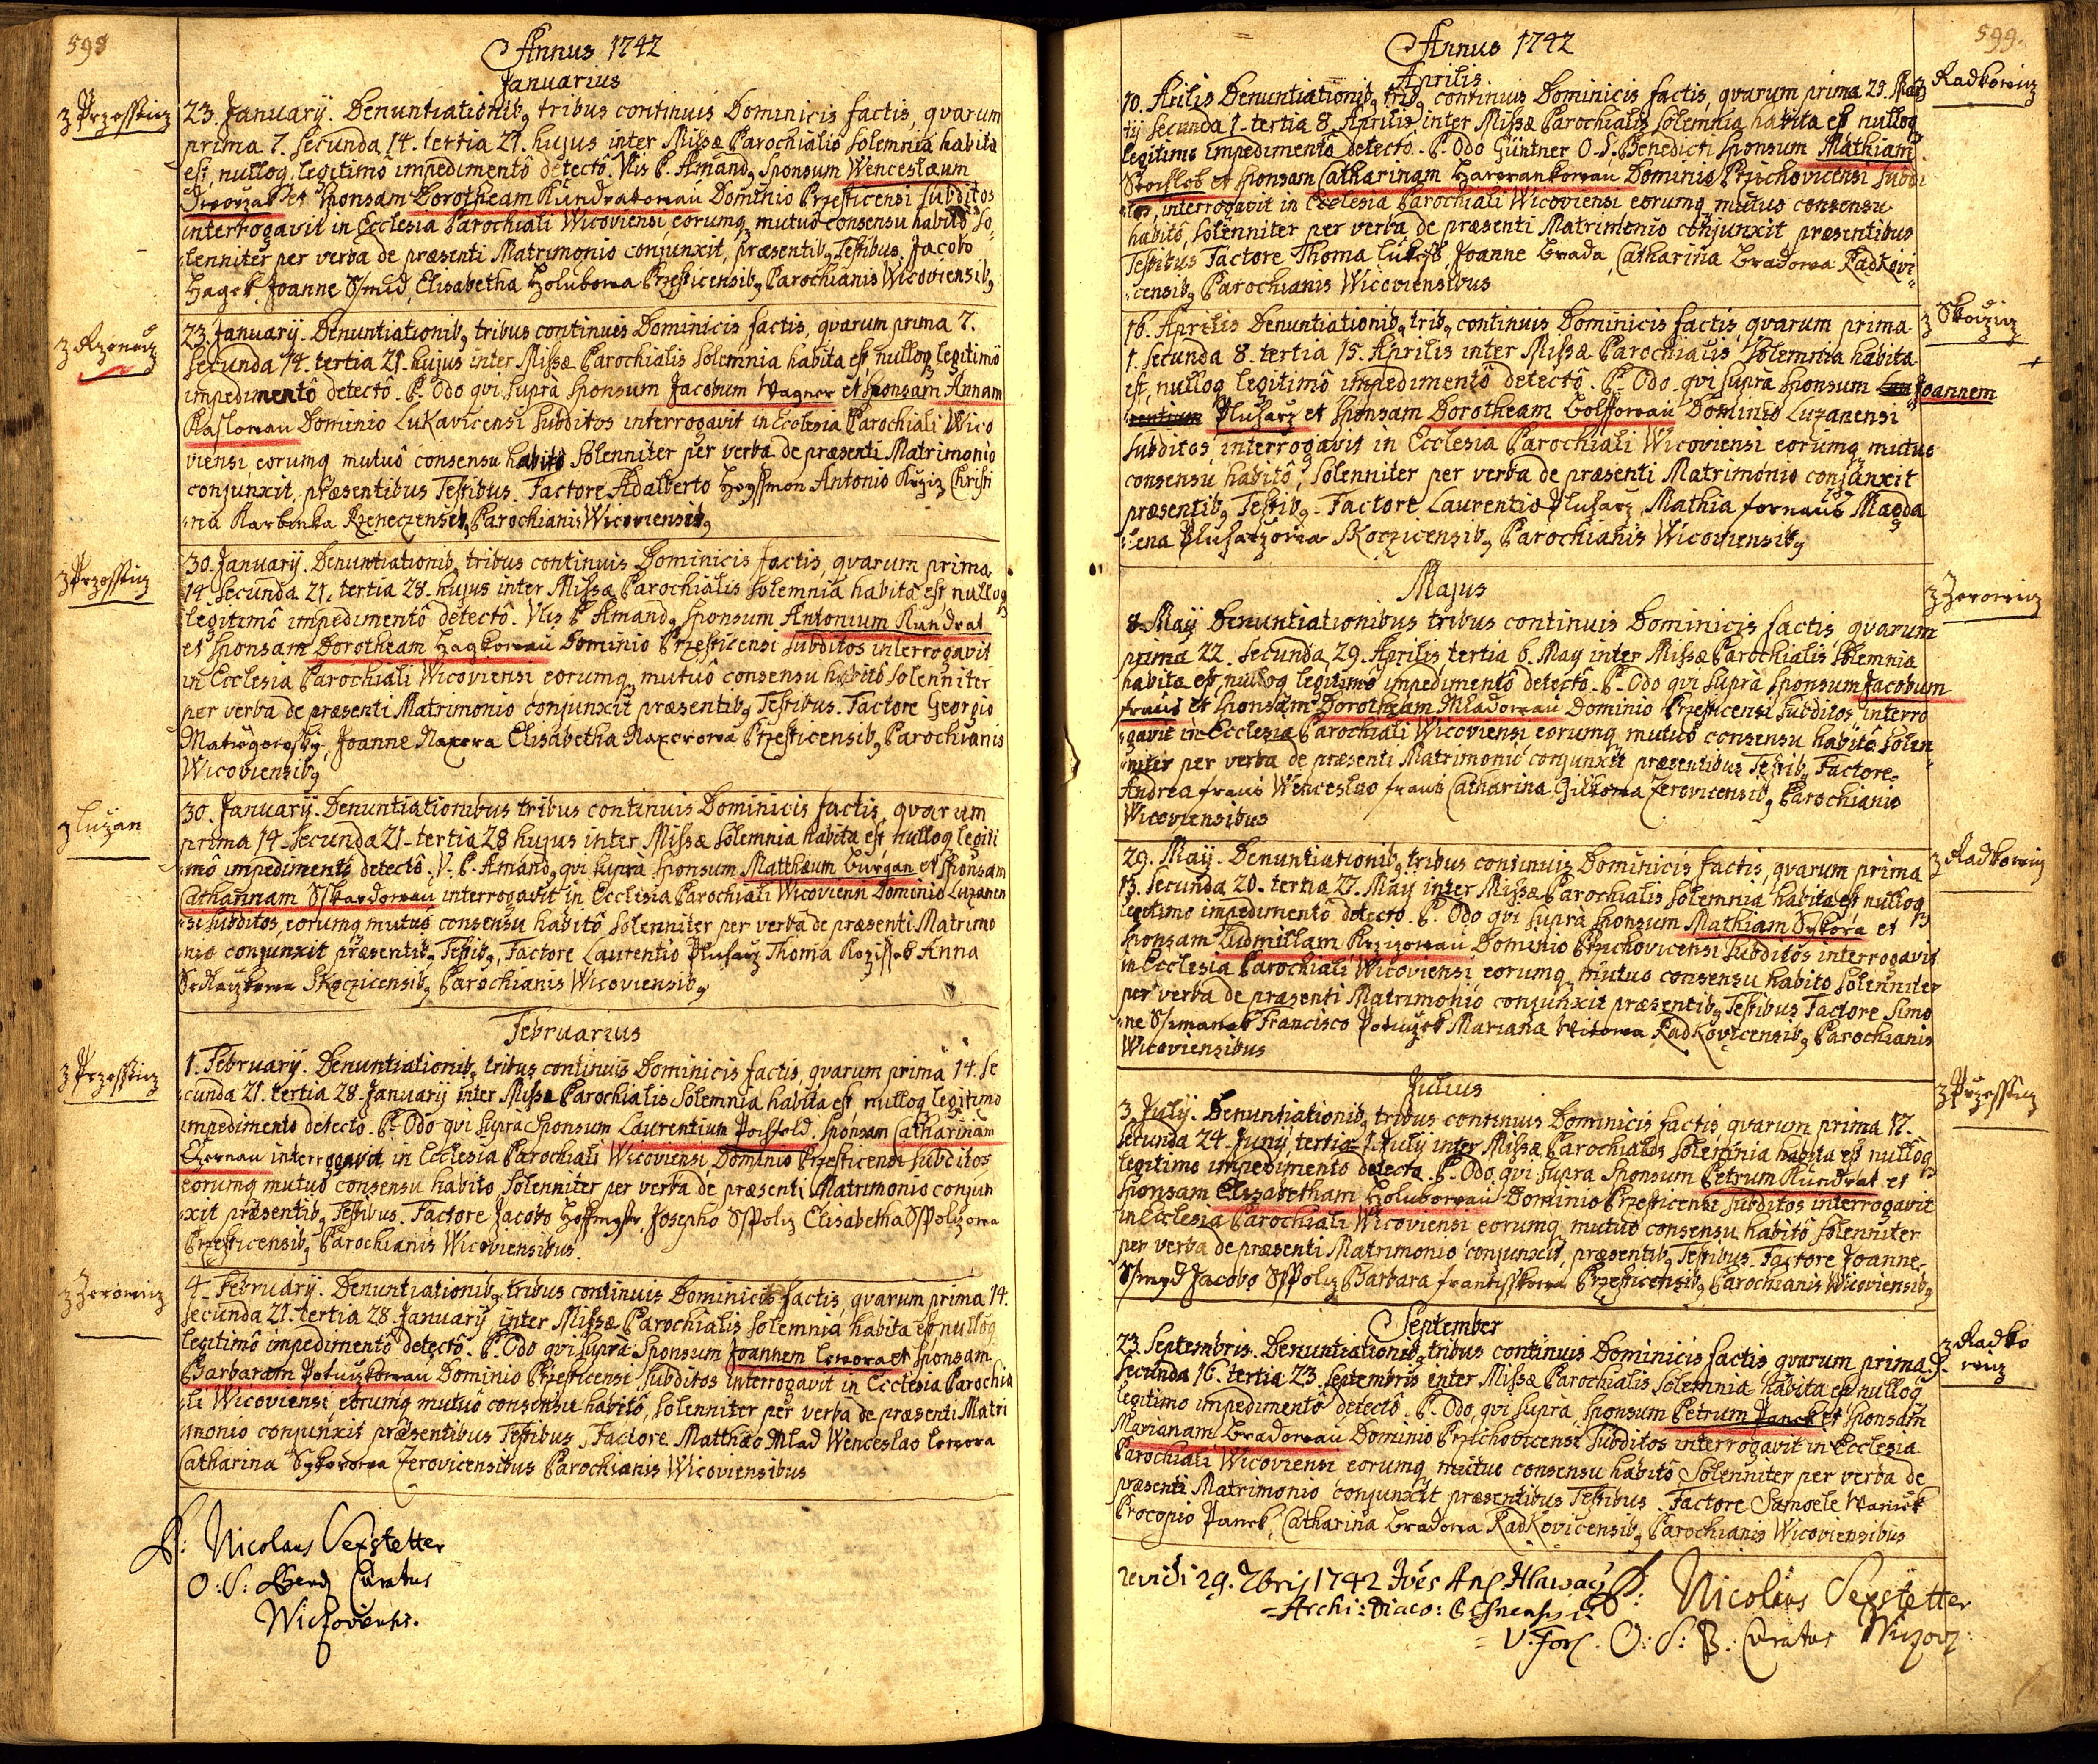 598
Annus 1742
Januarius
z Przesstiz
23. Januarÿ. Denuntiationib9 tribus continuis Dominicis factis, qvarum
prima 7. Secunda 14. tertia 21. hujus inter Missæ Parochialis Solemnia habita
est, nulloq legitimô impedimentô detectô. Vts P. Amand9 Sponsum Wenceslaum
Dworzak et Sponsam Dorotheam Kundratowau Dominio Przesticensi Subditos
interrogavit in Ecclesia Parochiali Wicoviensi, eorumq mutuo consensu habito So,,
,,lenniter per verba de præsenti Matrimonio conjunxit, præsentib9 Testibus, Jacobo
Hagek, Joanne Ssmid, Elisabetha Holubowa Przesticensib9 Parochianis Wicoviensib9
z Rzenecz
23. Januarÿ. Denuntiationib9 tribus continuis Dominicis factis, qvarum prima 7.
Secunda 14. tertia 21. hujus inter Missæ Parochialis Solemnia habita est, nulloq legitimô
impedimentô detectô. P. Odo qvi supra Sponsum Jacobum Wagner et Sponsam Annam
Kaslowau Dominio Lukavicensi Subditos interrogavit in Ecclesia Parochiali Wico
viensi eorumq mutuô consensu habitô Solenniter per verba de præsenti Matrimonio
conjunxit, præsentibus Testibus. Factore Adalberto Heyssmon Antonio Krziz Christi
,,na Karbinka Rzeneczensib9 Parochianis Wicoviensib9
z Przesstiz
30. Januarÿ. Denuntiationib9 tribus continuis Dominicis factis, qvarum prima
14 Secunda 21. tertia 28. hujus inter Missæ Parochialis Solemnia habita est nulloq
legitimô impedimentô detectô. Vts P Amand9 Sponsum Antonium Kundrat
et Sponsam Dorotheam Hagkowau Dominio Przesticensi Subditos interrogavit
in Ecclesia Parochiali Wicoviensi eorumq mutuô consensu habitô Solenniter
per verba de præsenti Matrimonio conjunxit præsentib9 Testibus. Factore Georgio
Joanne Naxera Elisabetha Naxerowa Przesticensib9 Parochianis
Wicoviensib9
z Luzan
30. Januarÿ. Denuntiationibus tribus continuis Dominicis factis, qvarum
prima 14 Secunda 21. tertia 28 hujus inter Missæ Solemnia habita est, nulloq legiti
,,mô impedimentô detectô. V. P. Amand9 qvi supra Sponsum Matthæum Burgan et Sponsam
Catharinam Sskardowau interrogavit in Ecclesia Parochiali Wicovieni Dominio Luzanen
,,si Subditos, eorumq mutuô consensu habitô Solenniter per verba de præsenti Matrimo
,,nio conjunxit præsentib9 Testib9, Factore Laurentio Pluharz Thoma Rozissek Anna
Skoczicensib9 Parochianis Wicoviensib9
Februarius
z Przesstiz
1. Februarÿ. Denuntiationib9 tribus continuis Dominicis factis, qvarum prima 14. Se
,,cunda 21. tertia 28. Januarÿ inter Missæ Parochialis Solemnia habita est, nulloq legitimo
impedimento detecto. P. Odo qvi supra Sponsum Laurentium Poissold. Sponsam Catharinam
Czernau interrogavit in Ecclesia Parochiali Wicoviensi Dominio Przesticensi Subditos
eorumq mutuo consensu habito Solenniter per verba de præsenti Matrimonio conjun
,,xit præsentib9 Testibus. Factore Jacobo Hoffmistr, Josepho Sspoliz Elisabetha Sspolizowa
Przesticensib9 Parochianis Wicoviensibus.
z Zerowiz
4. Februarÿ. Denuntiationib9 tribus continuis Dominicis factis, qvarum prima 14.
Secunda 21. tertia 28 Januarÿ inter Missæ Parochialis Solemnia habita est nulloq
legitimô impedimentô detectô. P. Odo qvi supra Sponsum Joannem Lewora et Sponsam
Barbaram Potuczkowau Dominio Przesticensi Subditos interrogavit in Ecclesia Parochia
,,li Wicoviensi, eorumq mutuô consensu habitô, Solenniter per verba de præsenti Matri
,,monio conjunxit præsentibus Testibus, Factore Matthæo Mlad Wenceslao Lewora
Catharina Sykorowa Zerovicensibus Parochianis Wicoviensibus
P: Nicolaus Sexstetter
O: S: Bened Curatus
Wiczoviensi.
599.
Annus 1742
Aprilis.
z Radkowiz
10. Aprilis Denuntiationib9 trib9 continuis Dominicis factis, qvarum prima 25. Mar
tÿ Secunda 1. tertia 8 Aprilis inter Missæ Parochialis Solemnia habita est nulloq
legitimo impedimentô detecto. P. Odo Güntner O. S. Benedicti Sponsum Mathiam
et Sponsam Catharinam Hawrankowau Dominio Przichovicensi Subdi
,,tos, interrogavit in Ecclesia Parochiali Wicoviensi eorumq mutuo consensu
habitô, Solenniter per verba de præsenti Matrimonio conjunxit præsentibus
Testibus Factore Thoma Lukess Joanne Brada, Catharina Bradowa Radkovi
,,censib9 Parochianis Wicoviensibus
z Skocziz
16. Aprilis Denuntiationib9 trib9 continuis Dominicis factis qvarum prima
1. Secunda 8. tertia 15. Aprilis inter Missæ Parochialis Solemnia habita
est, nulloq legitimô impedimentô detectô. P. Odo qvi supra Sponsum Lau Joannem
rentium Pluharz et Sponsam Dorotheam Bolffowau Dominio Luzanensi
Subditos interrogavit in Ecclesia Parochiali Wicoviensi eorumq mutuo
consensu habitô, Solenniter per verba de præsenti Matrimonio conjunxit
præsentib9 Testib9. Factore Laurentio Pluharz, Mathia Fornaus Magda
,,lena Pluharzowa Skoczicensib9 Parochianis Wicoviensib9
Majus
z Zerowiz
8 Maÿ Denuntiationibus tribus continuis Dominicis factis, qvarum
prima 22. Secunda 29. Aprilis tertia 6. May inter Missæ Parochialis Solemnia
habita est, nulloq legitimo impedimentô detectô. P. Odo qvi supra Sponsum Jacobum
Fraus et Sponsam Dorotheam Mladowau Dominio Przesticensi Subditos interro
,,gavit in Ecclesia Parochiali Wicoviensi eorumq mutuô consensu habitô Solen
,,niter per verba de præsenti Matrimonio conjunxit præsentibus Testib9 Factore
Andrea Fraus Wenceslao Fraus Catharina Zilkowa Zerovicensib9 Parochianis
Wicoviensibus
z Radkowiz
29. Maÿ. Denuntiationib9 tribus continuis Dominicis factis, qvarum prima
13. Secunda 20. tertia 27. Maÿ inter Missæ Parochialis Solemnia habita est nulloq
legitimo impedimentô detectô. P. Odo qvi supra Sponsum Mathiam Sykora et
Sponsam Ludmillam Krzizowau Dominio Przichovicensi Subditos interrogavit
in Ecclesia Parochiali Wicoviensi, eorumq mutuo consensu habito Solenniter
per verba de præsenti Matrimonio conjunxit præsentib9 Testibus Factore Simo
,,ne Ssimanek Francisco Potuczek Mariana Witowa Radkovicensib9 Parochianis
Wicoviensibus
Julius
z Przesstiz
3. Julÿ. Denuntiationib9 tribus continuis Dominicis factis, qvarum prima 17.
Secunda 24. Junÿ, tertia 1. July inter Missæ Parochialis Solemnia habita est nulloq
legitimo impedimentô detectô. P. Odo qvi supra Sponsum Petrum Kundrat et
Sponsam Elisabetham Holubowau Dominio Przesticensi Subditos interrogavit
in Ecclesia Parochiali Wicoviensi eorumq mutuô consensu habitô Solenniter
per verba de præsenti Matrimonio conjunxit, præsentib9 Testibus. Factore Joanne
Ssmyd Jacobo Sspoliz Barbara Frantisskowa Przesticensib9 Parochianis Wicoviensib9
September
z Radko
wiz
23. Septembris. Denuntiationib9 tribus continuis Dominicis factis qvarum prima 9.
Secunda 16. tertia 23. Septembris inter Missæ Parochialis Solemnia habita est nulloq
legitimo impedimentô detectô. P. Odo, qvi supra Sponsum Petrum Panek et Sponsam
Marianam Bradowau Dominio Przichovicensi Subditos interrogavit in Ecclesia
Parochiali Wicoviensi eorumq mutuo consensu habitô Solenniter per verba de
præsenti Matrimonio conjunxit præsentibus Testibus. Factore Samoele Wanick
Procopio Panek, Catharina Bradowa Radkovicensib9 Parochianis Wicoviensibus
revidi 29. 7bris 1742
Archi: Diaco:
V: For.
P: Nicolaus Sexstetter
O: S: B: Curatus Wiczov: